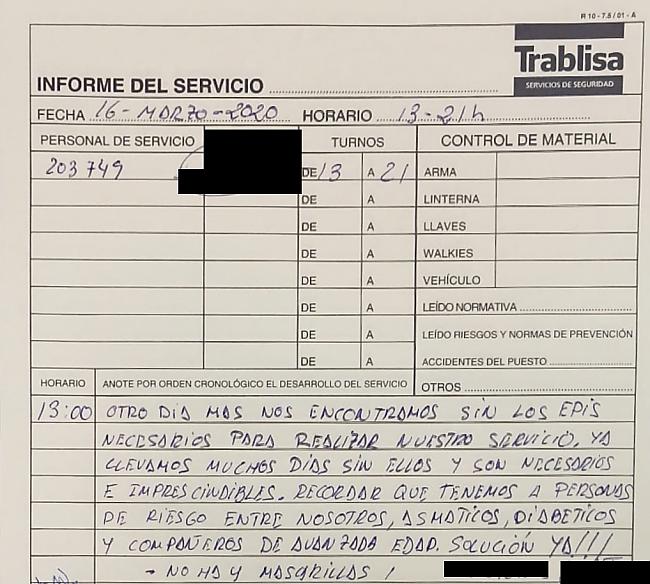 R 10 - 7.5 / 01 - A
Trablisa
SERVICIOS DE SEGURIDAD
INFORME DEL SERVICIO
FECHA 16 - MARZO - 2020 HORARIO 13 - 21h
PERSONAL DE SERVICIO TURNOS CONTROL DE MATERIAL
203749 DE 13 A 21 ARMA
DE A LINTERNA
DE A LLAVES
DE A WALKIES
DE A VEHÍCULO
DE A LEÍDO NORMATIVA
DE A LEÍDO RIESGOS Y NORMAS DE PREVENCIÓN
DE A ACCIDENTES DEL PUESTO
HORARIO ANOTE POR ORDEN CRONOLÓGICO EL DESARROLLO DEL SERVICIO OTROS
13:00 OTRO DIA MAS NOS ENCONTRAMOS SIN LOS EPIS
NECESARIOS PARA REALIZAR NUESTRO SERVICIO. YA
LLEVAMOS MUCHOS DÍAS SIN ELLOS Y SON NECESARIOS
E IMPRESCINDIBLES. RECORDAR QUE TENEMOS A PERSONAS
DE RIESGO ENTRE NOSOTROS, ASMATICOS, DIABETICOS
Y COMPAÑEROS DE AVANZADA EDAD. SOLUCIÓN YA!!!
- NO HAY MASCARILLAS!